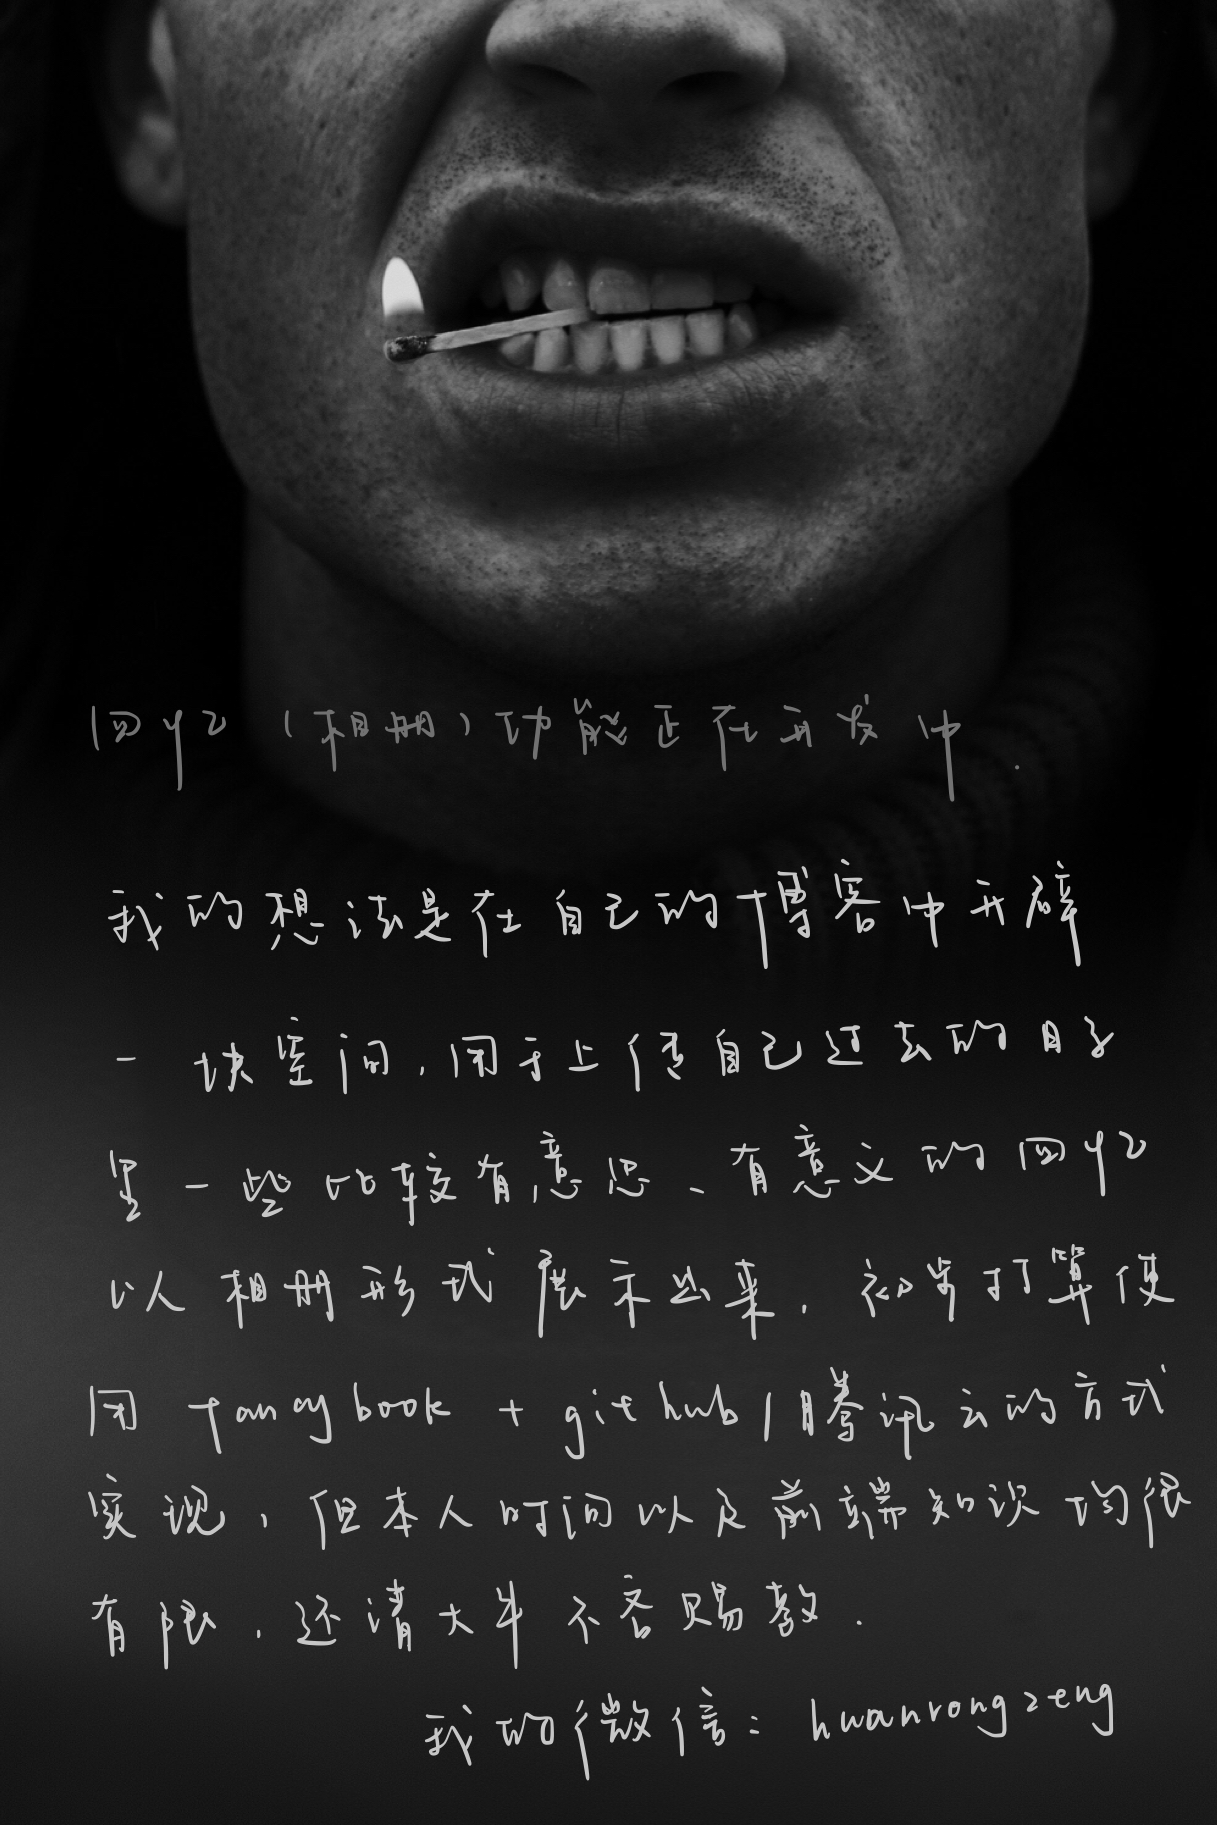 回忆（相册）功能正在开发中.
我的想法是在自己的博客中开辟
一块空间，用于上传自己过去的日子
里一些比较有意思、有意义的回忆
以相册形式展示出来，初步打算使
用 fancybook + github/腾讯云的方式
实现，但本人时间以及前端知识均很
有限，还请大牛不吝赐教.
我的微信：huanrongzeng